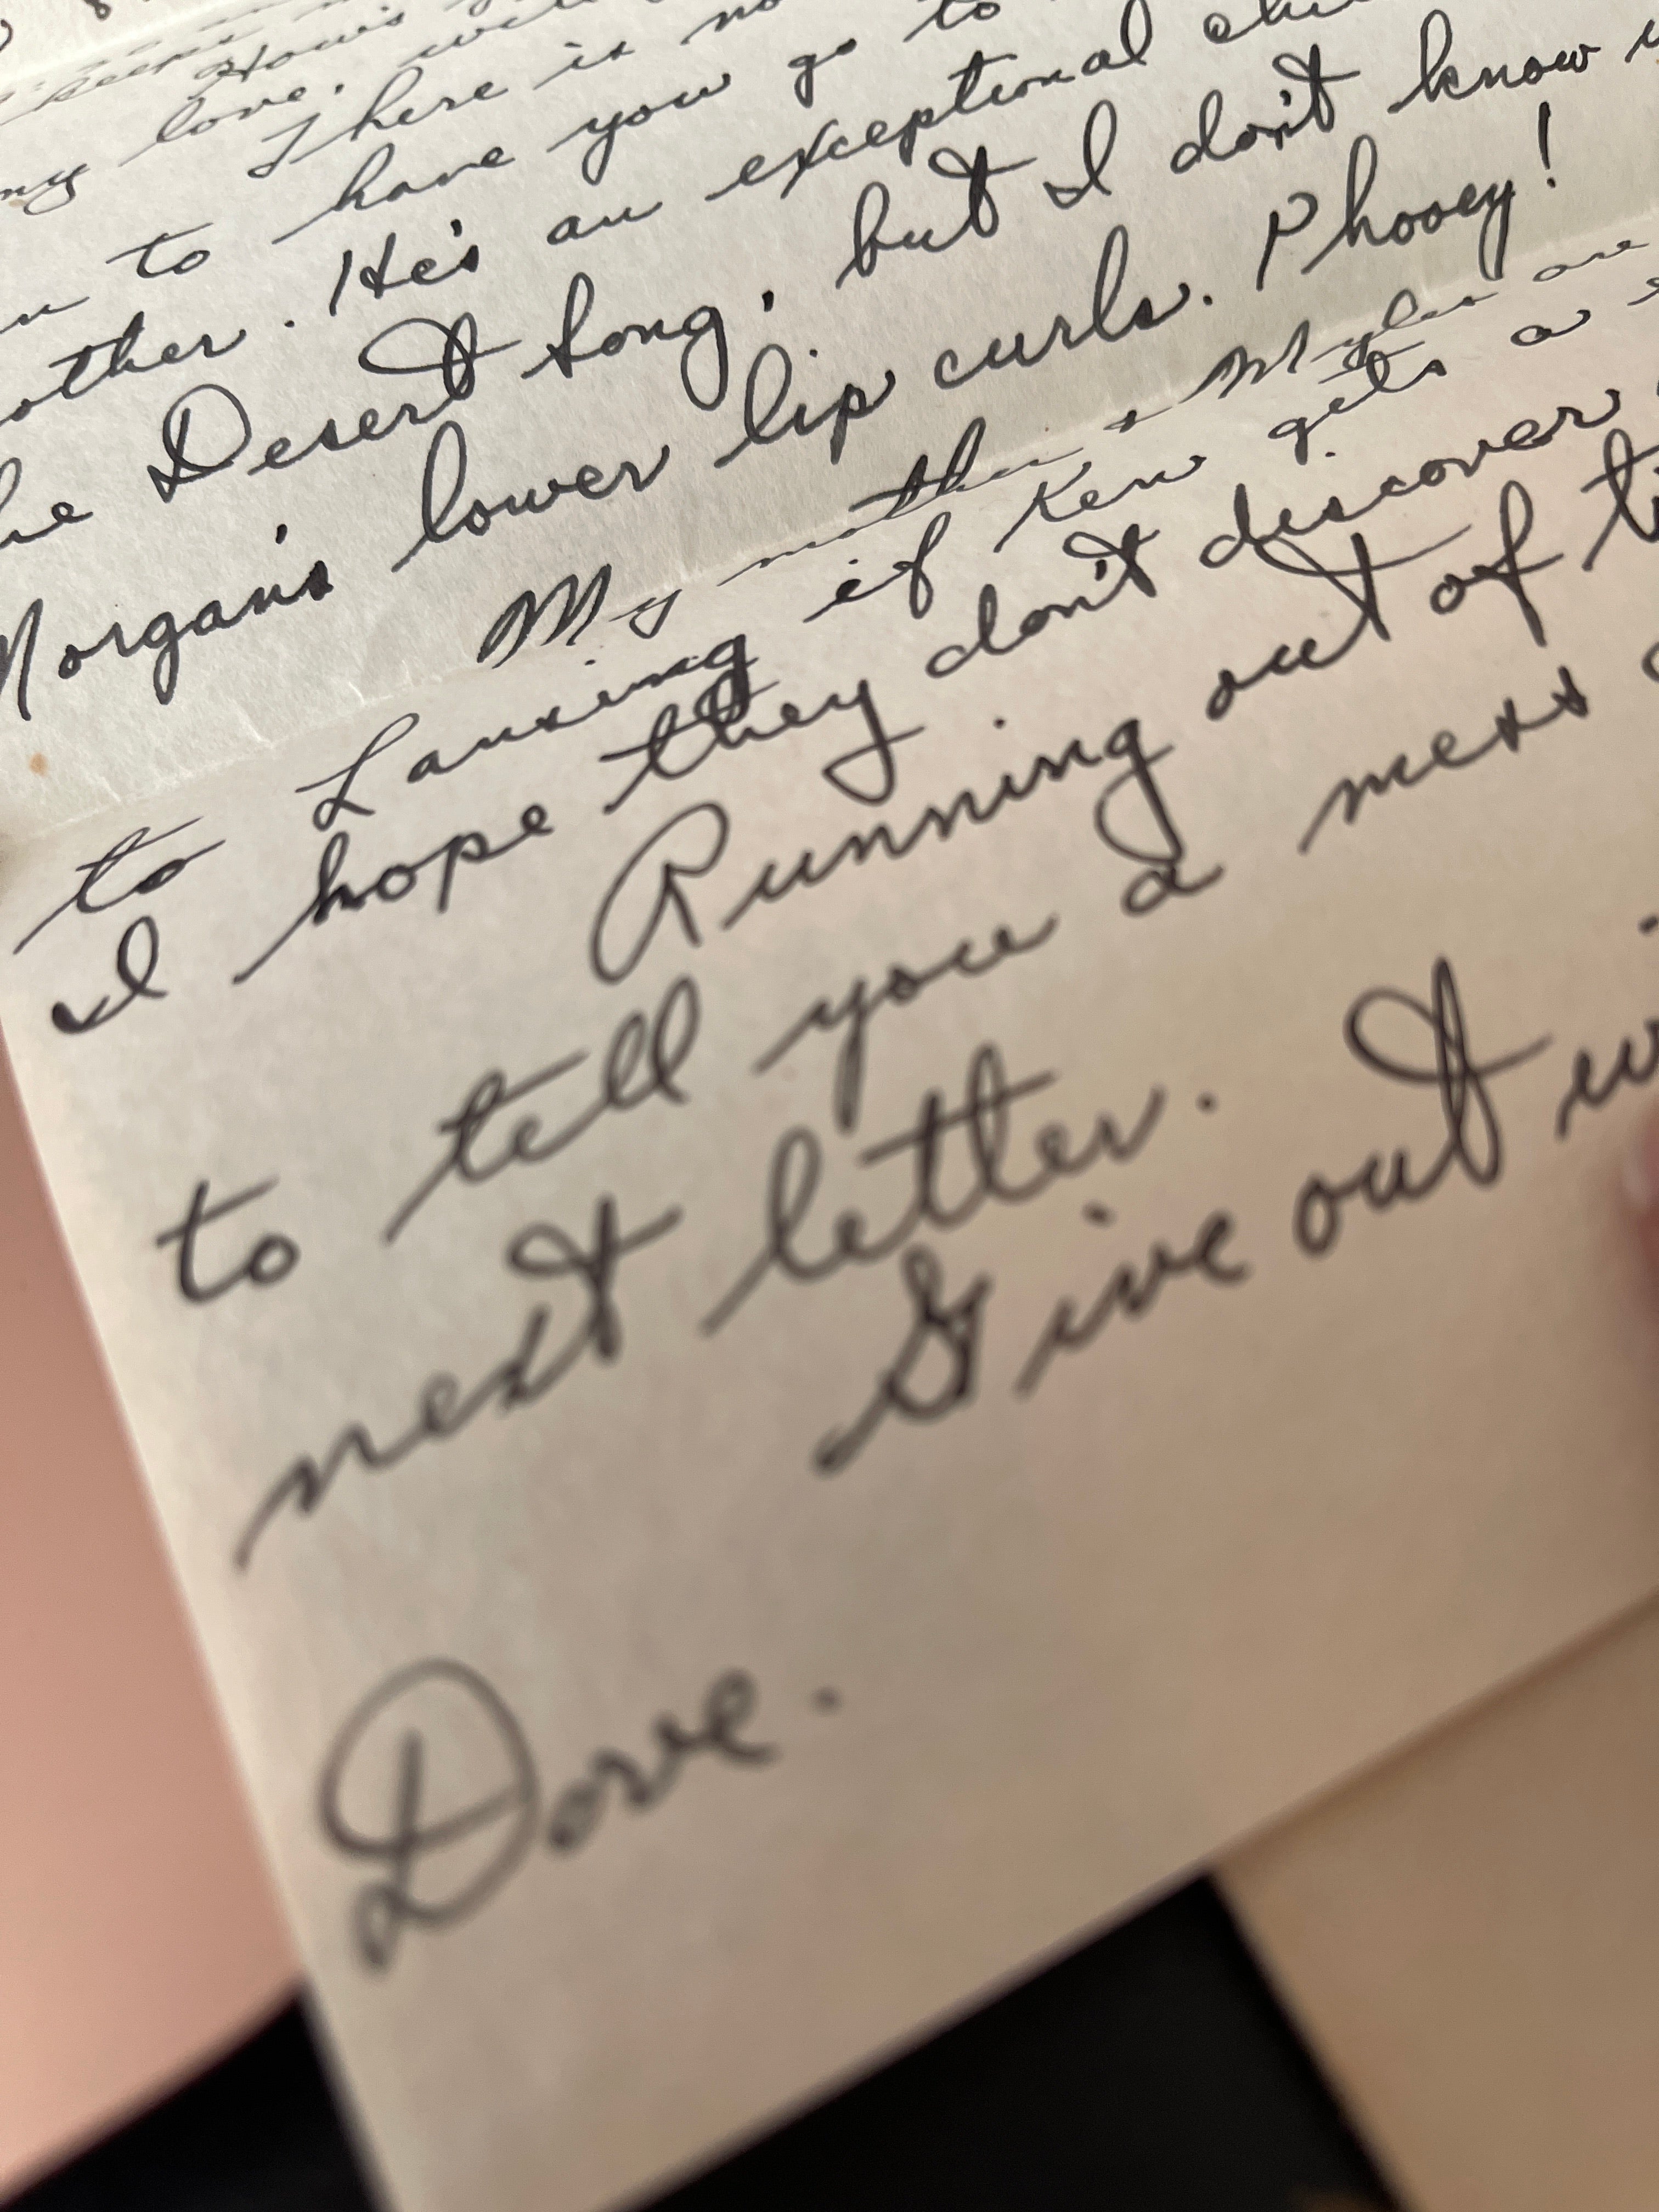 my love.
There is
to have you go to
other. He's an exceptional
Desert Song, but I don't know
Morgan's lower lip curls. Phooey!
My mother & Myler are
to Lansing if Ken gets a
I hope they don't discover
Running out of
to tell you a mess
next letter.
Give out
Dove.